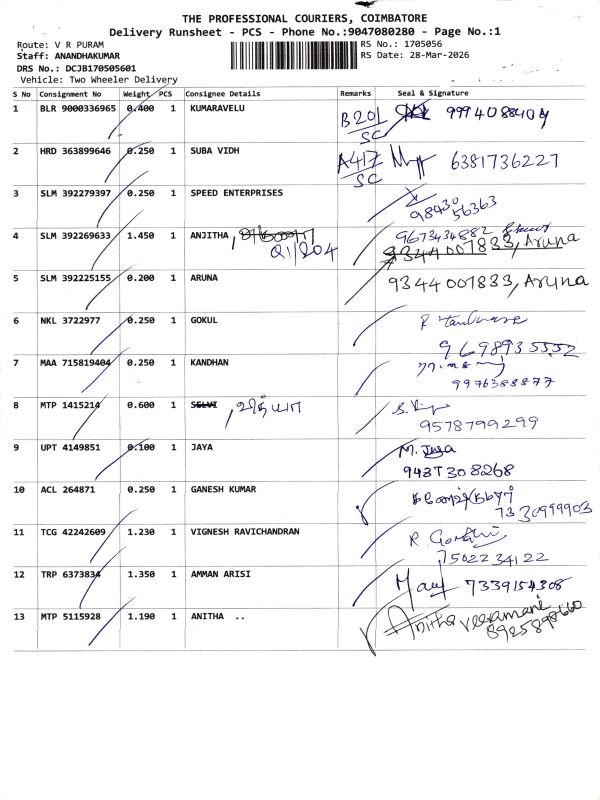 THE PROFESSIONAL COURIERS, COIMBATORE
Delivery Runsheet - PCS - Phone No.:9047080280 - Page No.:1
Route: V R PURAM RS No.: 1705056
Staff: ANANDHAKUMAR RS Date: 28-Mar-2026
DRS No.: DCJB170505601
Vehicle: Two Wheeler Delivery
S No Consignment No Weight PCS Consignee Details Remarks Seal & Signature
1 BLR 9000336965 0.400 1 KUMARAVELU B201 9994088404
SC
2 HRD 363899646 0.250 1 SUBA VIDH A417 6381736227
SC
3 SLM 392279397 0.250 1 SPEED ENTERPRISES 98430
56363
4 SLM 392269633 1.450 1 ANJITHA, 9673434882
Q1/204 9344007833, Aruna
5 SLM 392225155 0.200 1 ARUNA 9344007833, Aruna
6 NKL 3722977 0.250 1 GOKUL
9698935552
7 MAA 715819404 0.250 1 KANDHAN
9976388877
8 MTP 1415214 0.600 1 SELVI, வித்யா
9578799299
9 UPT 4149851 0.100 1 JAYA M. Jaya
9437308268
10 ACL 264871 0.250 1 GANESH KUMAR
7330999903
11 TCG 42242609 1.230 1 VIGNESH RAVICHANDRAN R. Gomathi
7502234122
12 TRP 6373834 1.350 1 AMMAN ARISI 7339154308
13 MTP 5115928 1.190 1 ANITHA .. Anitha veeramani
8925898660